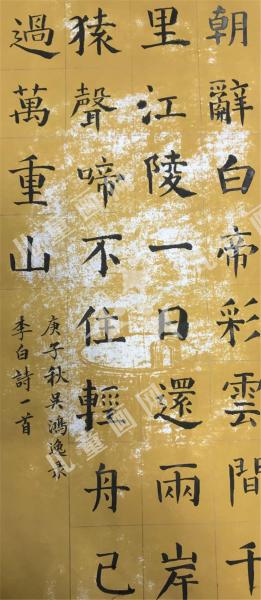 朝辭白帝彩雲間千
里江陵一日還兩岸
猿聲啼不住輕舟已
過萬重山
庚子秋吴鴻逸录
李白詩一首
儿童画网